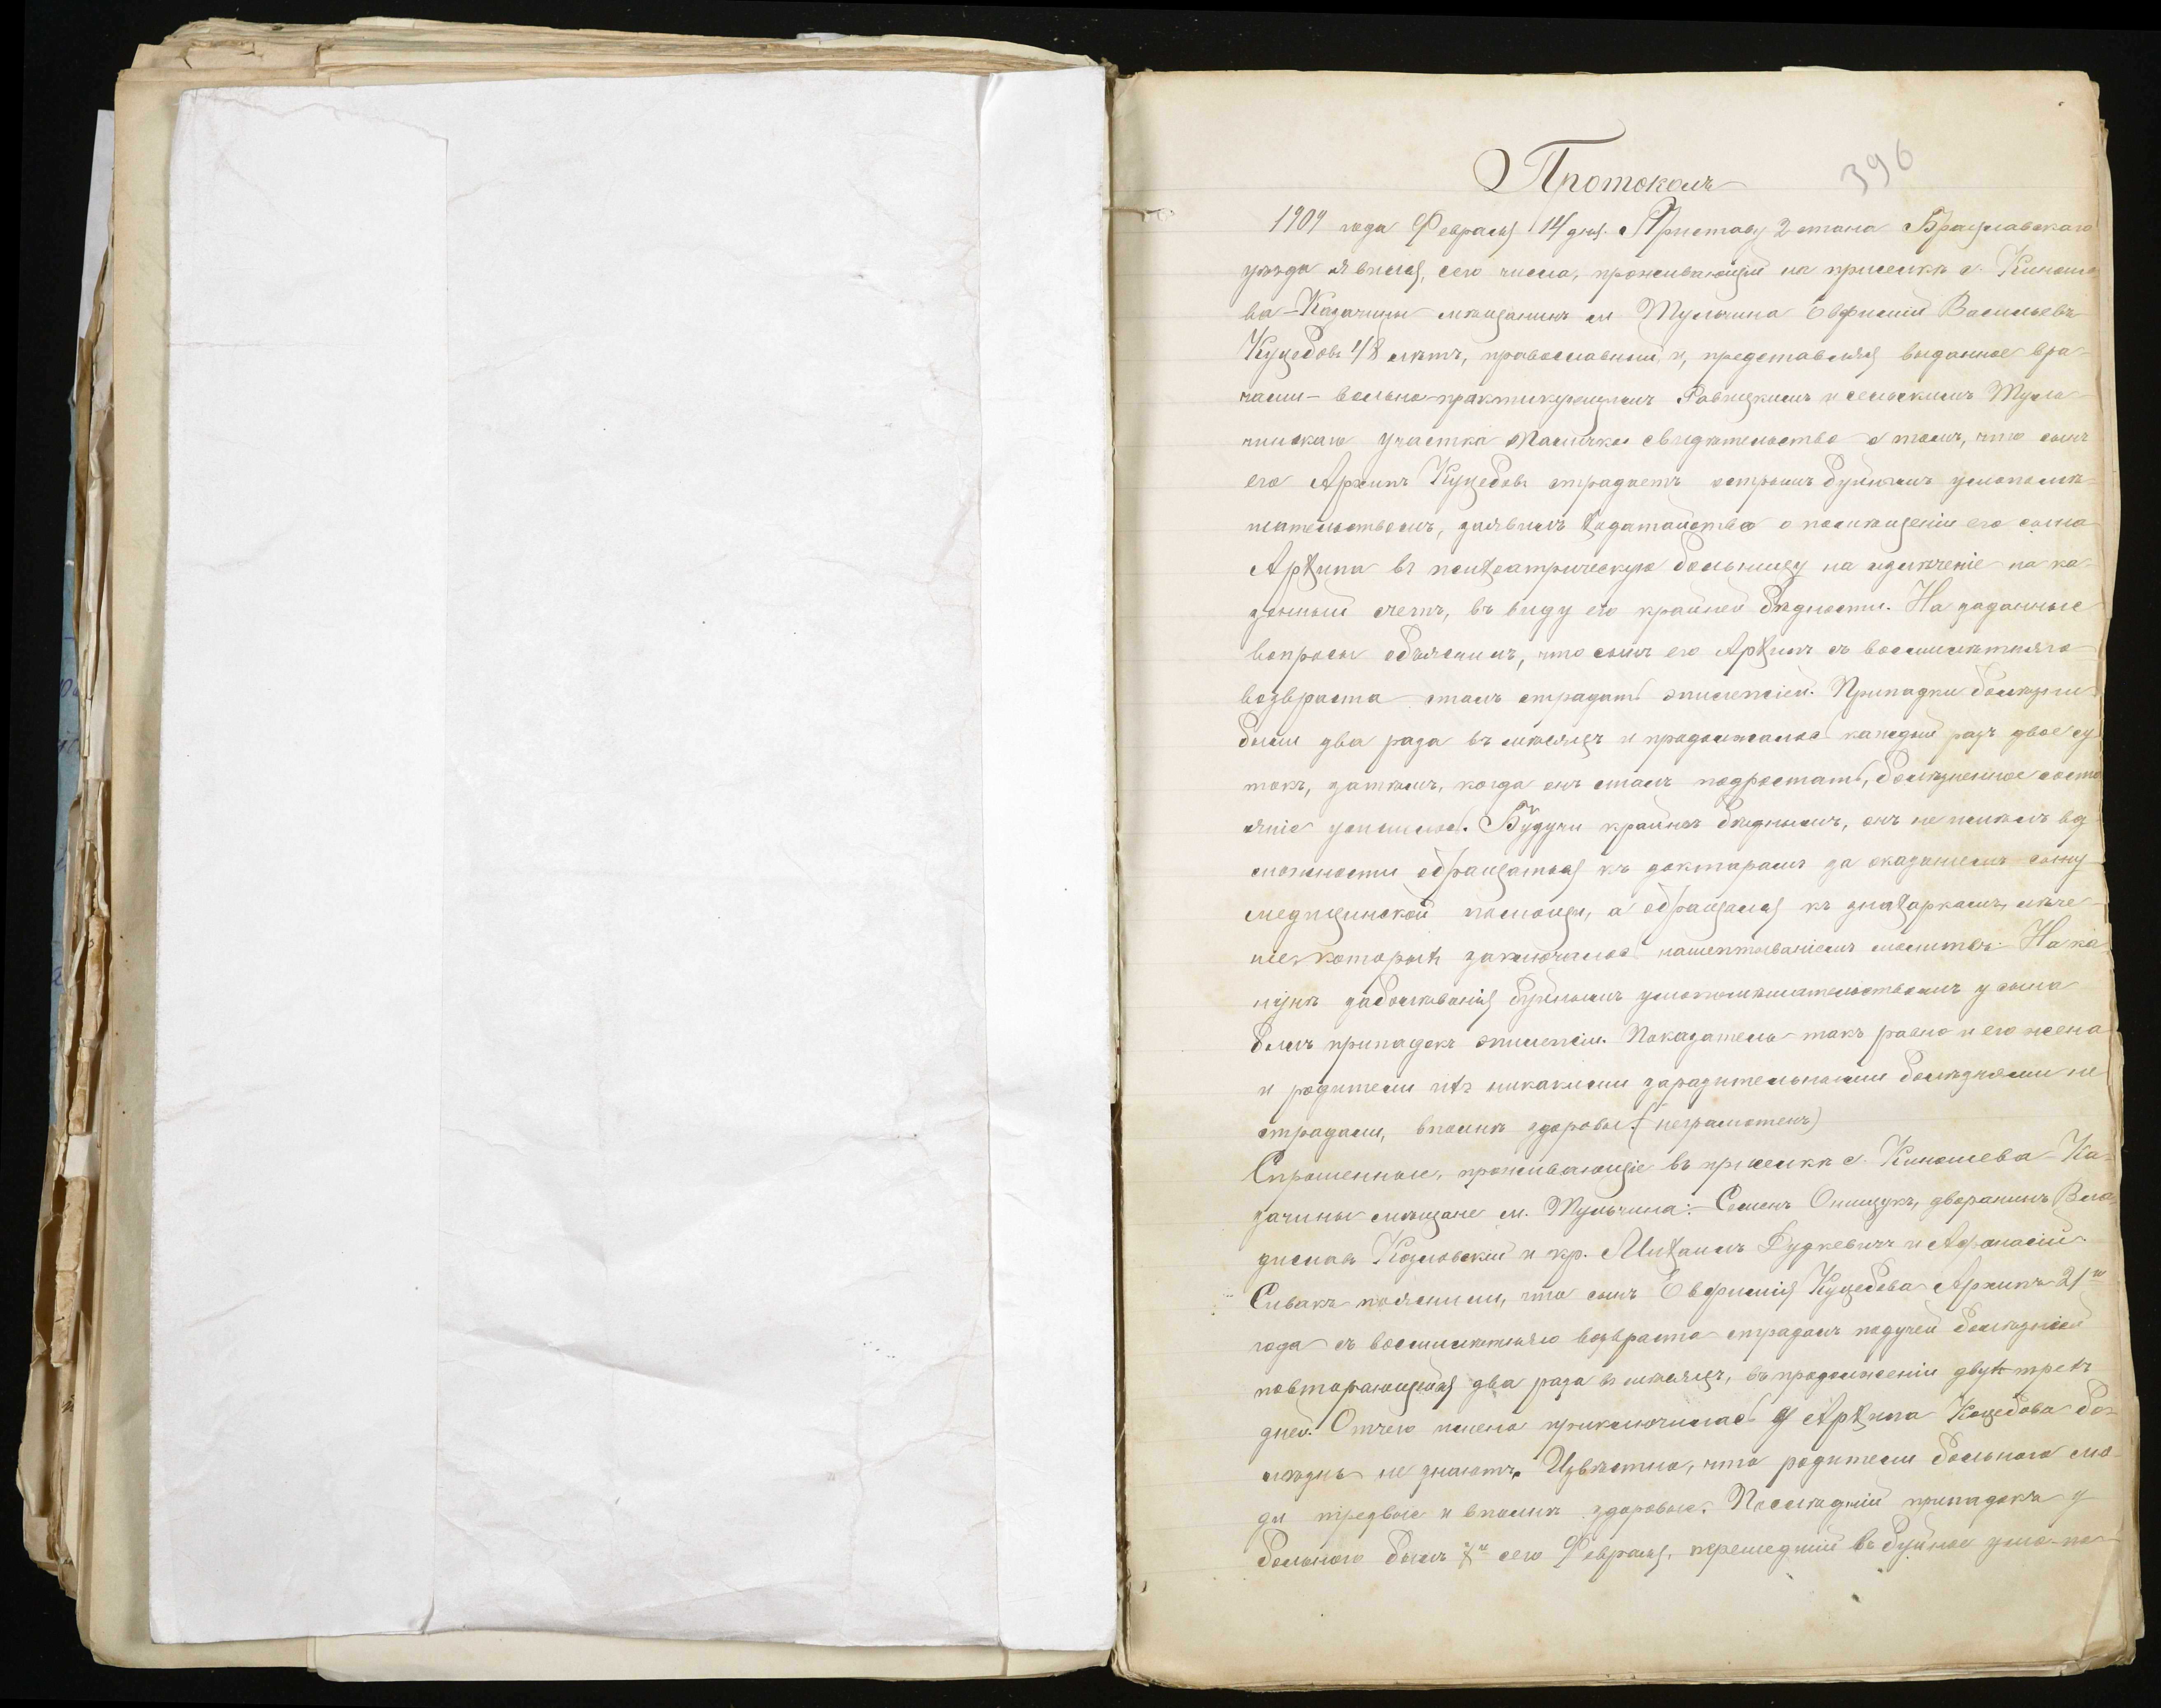 Протоколъ
396
1904 года Февраля 14 дня. Приставу 2 стана Брацлавскаго
уѣзда явился, сего числа, проживающій на приселкѣ с. Кинаше-
ва-Казачины мѣщанинъ м. Тульчина Евфимій Васильевъ
Куцебовъ 48 лѣтъ, православный и, представляя выданное вра-
чами - вольно-практикующимъ Равицкимъ и сельскимъ Туль-
чинскаго участка свидѣтельство о томъ, что сынъ
его Архипъ Куцебовъ страдаетъ острымъ буйнымъ умопомѣ-
шательствомъ, заявилъ ходатайство о помѣщеніи его сына
Архипа въ психіатрическую больницу на излѣченіе на ка-
зенный счетъ, въ виду его крайней бѣдности. На заданные
вопросы объяснилъ, что сынъ его Архипъ съ восьмилѣтняго
возвраста сталъ страдать эпилепсіей. Припадки болѣзни
были два раза въ мѣсяцъ и продолжалось каждый разъ двое су-
токъ, затѣмъ, когда онъ сталъ подростать, болѣзненное состо-
яніе усилилось. Будучи крайнѣ бѣднымъ, онъ не имѣлъ воз-
можности обращаться къ докторамъ за оказаніемъ сыну
медицинской помощи, а обращался къ знахаркамъ, лѣче-
ніе которыхъ заключалось нашептываніемъ молитвъ. Нака-
нунѣ заболѣванія буйнымъ умопомѣшательствомъ у сына
былъ припадокъ эпилепсіи. Показатель такъ равно и его жена
и родители ихъ никакими заразительными болѣзнями не
страдали, вполнѣ здоровы. (неграмотенъ)
Спрошенные, проживающіе въ приселкѣ с. Кинашева-Ка-
зачины мѣщане м. Тульчина: Семенъ Онищукъ, дворянинъ Вла-
диславъ Козловскій и кр. Михаилъ Дудкевичъ и Афанасій
Сивакъ пояснили, что сынъ Евфимія Куцебова Архипъ 21го
года съ восьмилѣтняго возвраста страдалъ падучей болѣзніей
повторяющейся два раза въ мѣсяцъ, въ продолженіи двухъ-трехъ
дней. Отчего имено приключилась у Архипа Куцебова бо-
лѣзнь не знаютъ. Извѣстно, что родители больного лю-
ди трезвые и вполнѣ здоровые. Послѣдній припадокъ у
больного былъ 7го сего Февраля, перешедшій въ буйное умо-по-